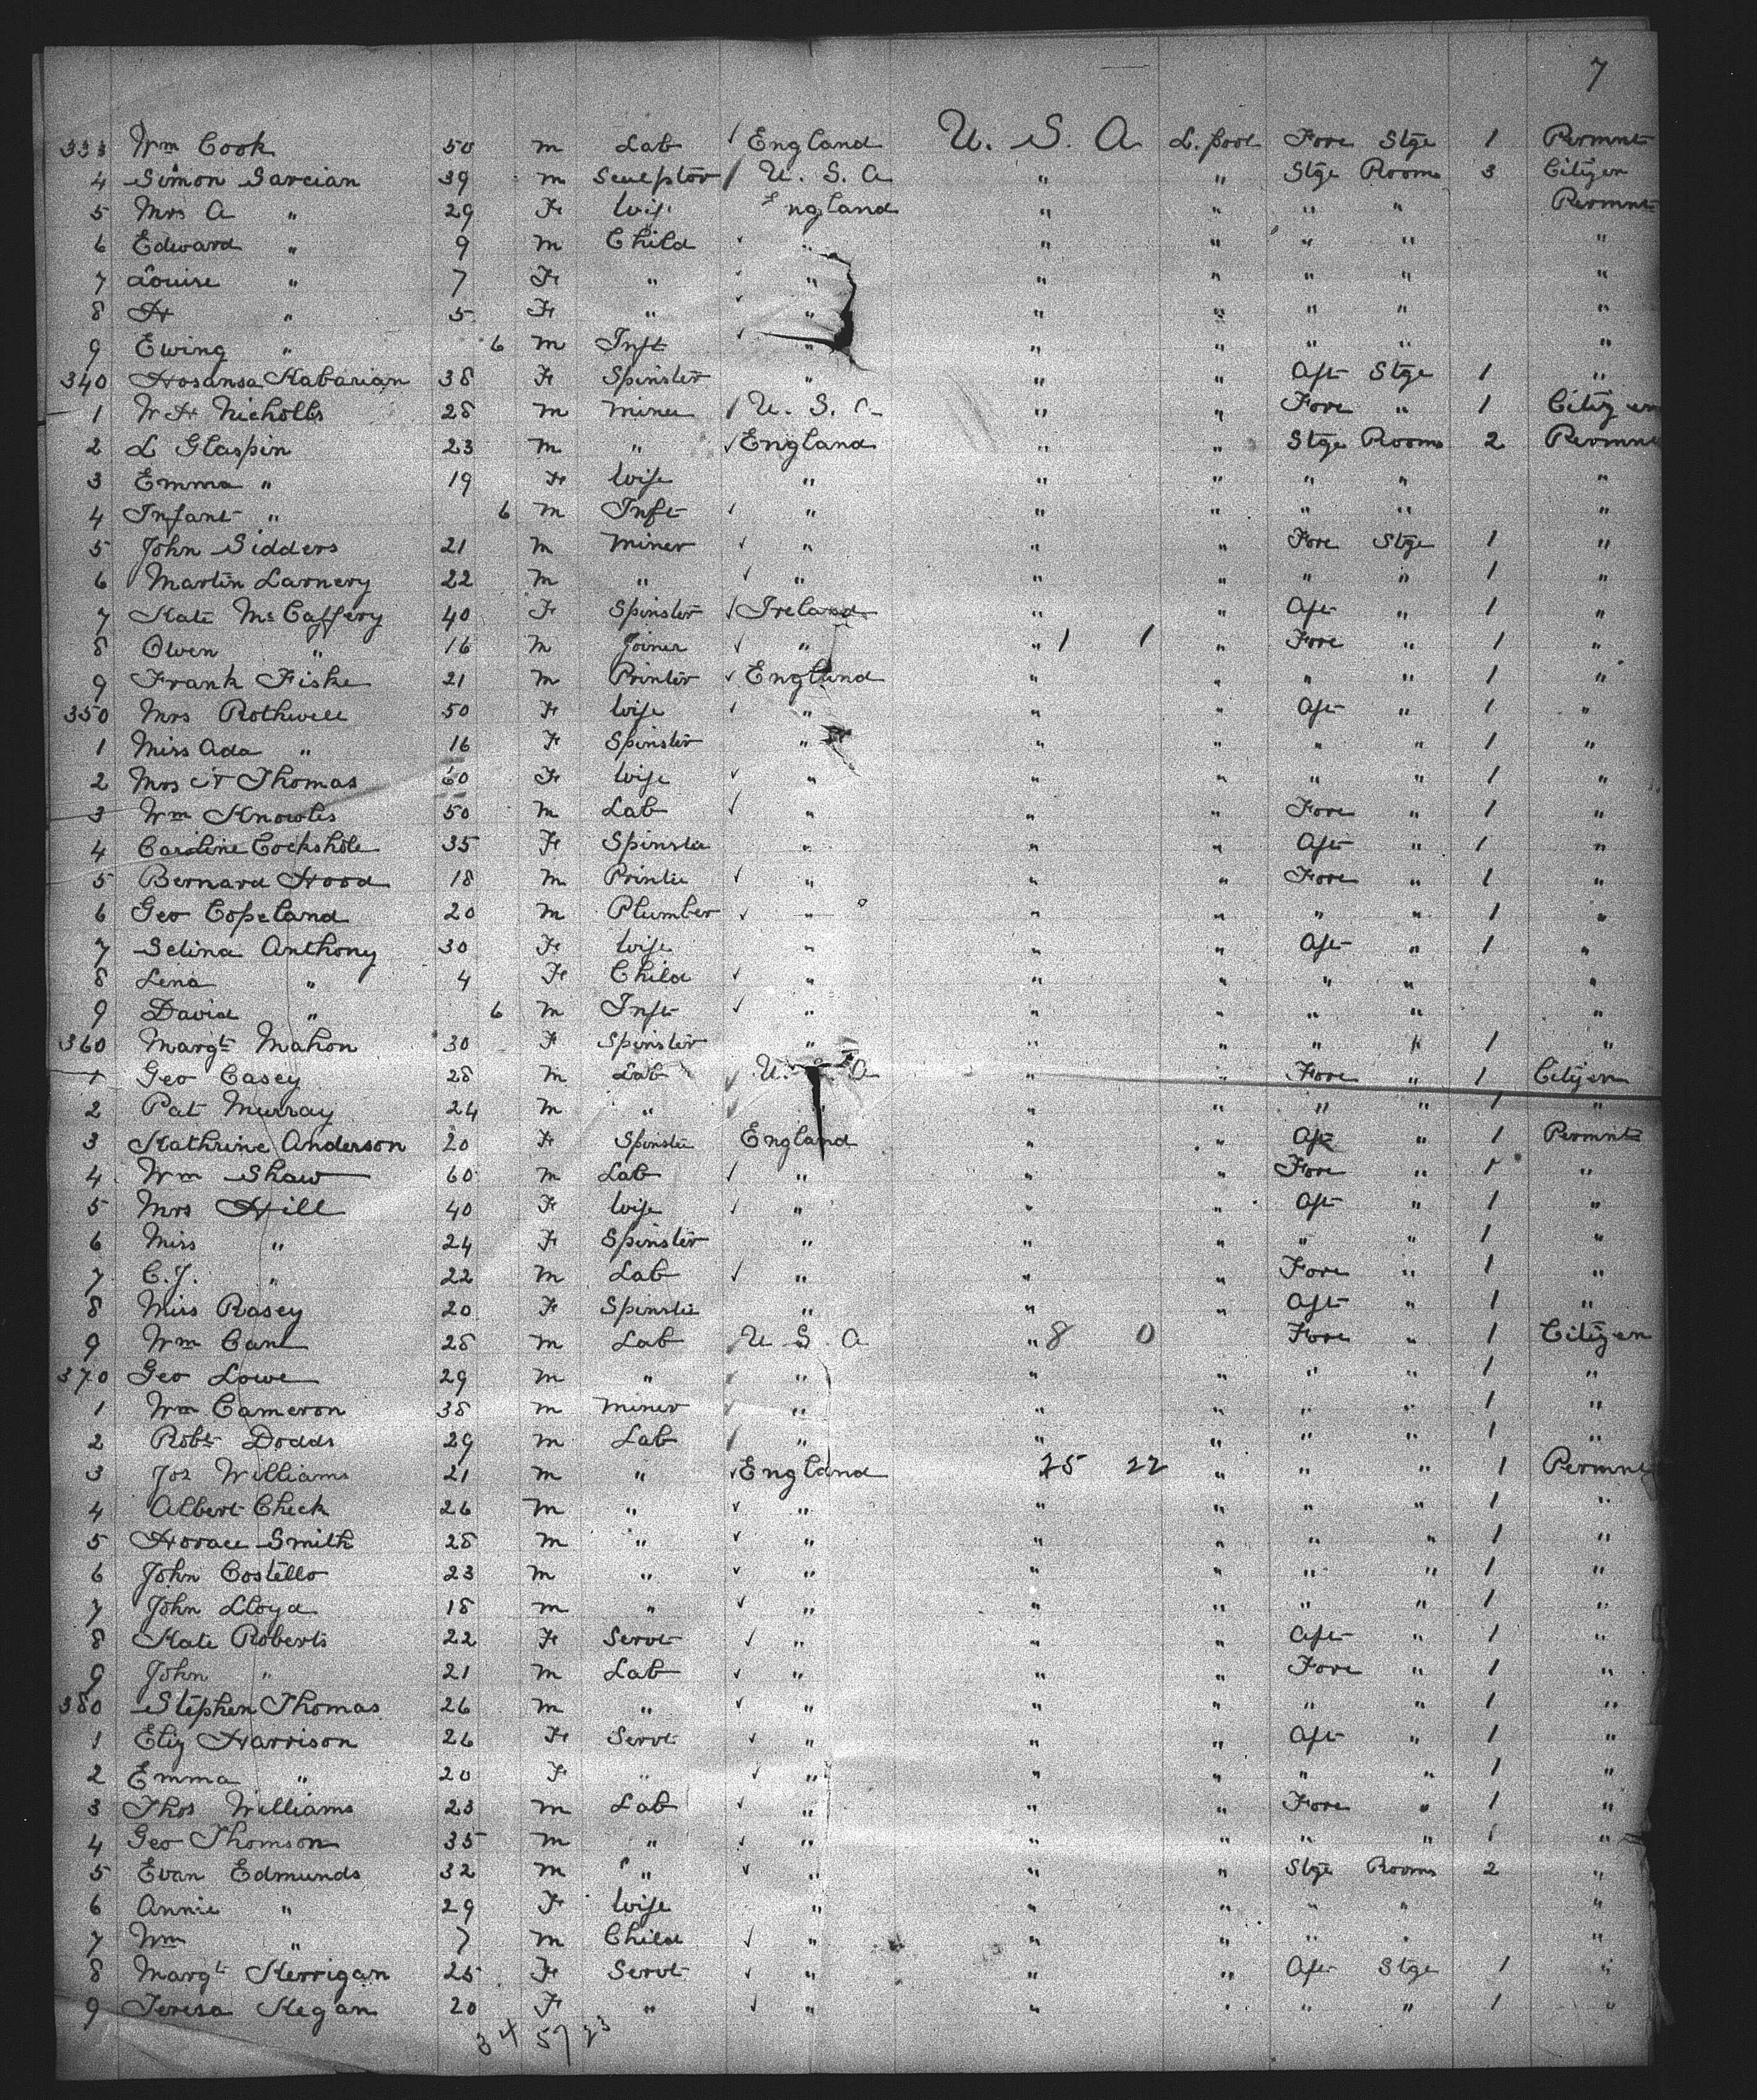 7
333 Wm Cook 50 m Lab England U. S. A L.pool Fore Stge 1 Permnt
4 Simon Sarcian 39 m Sculptor U. S. A " " Stge Rooms 3 Citizen
5 Mrs A " 29 F Wife England " " " " Permnt
6 Edward " 9 m Child " " " " " "
7 Louise " 7 F " " " " " " "
8 H " 5 F " " " " " " "
9 Ewing " 6 m Inft " " " " " "
340 Hosansa Kabarian 38 F Spinster " " " Aft Stge 1 "
1 W H Nicholls 28 m miner U. S. A " " Fore " 1 Citizen
2 L Glaspin 23 m " England " " Stge Rooms 2 Permnt
3 Emma " 19 F Wife " " " " " "
4 Infant " 6 m Inft " " " " " "
5 John Sidders 21 m miner " " " Fore Stge 1 "
6 Martin Larnery 22 m " " " " " " 1 "
7 Kate McCaffery 40 F Spinster Ireland " " Aft " 1 "
8 Owen " 16 m Joiner " " 1 1 " Fore " 1 "
9 Frank Fishe 21 m Printer England " " " " 1 "
350 Mrs Rothwell 50 F Wife " " " Aft " 1 "
1 Miss Ada " 16 F Spinster " " " " " 1 "
2 Mrs Thomas 60 F Wife " " " " " 1 "
3 Wm Knowles 50 m Lab " " " Fore " 1 "
4 Caroline Cockshole 35 F Spinster " " " Aft " 1 "
5 Bernard Hood 18 m Printer " " " Fore " 1 "
6 Geo Copeland 20 m Plumber " " " " " 1 "
7 Selina Anthony 30 F Wife " " " Aft " 1 "
8 Lena " 4 F Child " " " " " "
9 David " 6 m Inft " " " " " "
360 Margt Mahon 30 F Spinster " " " " " 1 "
1 Geo Casey 28 m Lab U. S A " " Fore " 1 Citizen
2 Pat Murray 24 m " " " " " " 1 "
3 Kathrine Anderson 20 F Spinster England " " Aft " 1 Permnt
4 Wm Shaw 60 m Lab " " " Fore " 1 "
5 Mrs Hill 40 F Wife " " " Aft " 1 "
6 Miss " 24 F Spinster " " " " " 1 "
7 C.J. " 22 m Lab " " " Fore " 1 "
8 Miss Rasey 20 F Spinster " " " Aft " 1 "
9 Wm Cane 28 m Lab U S A " 8 0 Fore " 1 Citizen
370 Geo Lowe 29 m " " " " " " 1 "
1 Wm Cameron 38 m miner " " " " " 1 "
2 Robt Dodds 29 m Lab " " " " " 1 "
3 Jos Williams 21 m " England 25 22 " " " 1 Permnt
4 Albert Cheek 26 m " " " " " " 1 "
5 Horace Smith 28 m " " " " " " 1 "
6 John Costello 23 m " " " " " " 1 "
7 John Lloyd 18 m " " " " " " 1 "
8 Kate Roberts 22 F Servt " " " Aft " 1 "
9 John " 21 m Lab " " " Fore " 1 "
380 Stephen Thomas 26 m " " " " " " 1 "
1 Eliz Harrison 26 F Servt " " " Aft " 1 "
2 Emma " 20 F " " " " " " 1 "
3 Thos Williams 23 m Lab " " " Fore " 1 "
4 Geo Thomson 35 m " " " " " " 1 "
5 Evan Edmunds 32 m " " " " Stge Rooms 2 "
6 Annie " 29 F Wife " " " " " "
7 Wm " 7 m Child " " " " " "
8 Margt Kerrigan 25 F Servt " " " Aft Stge 1 "
9 Teresa Kegan 20 F " " " " " " 1 "
34 57 23